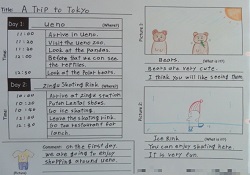 Title: A Trip to Tokyo
Day 1: Ueno (Where?)
Time
11:00 Arrive in Ueno.
11:20 Visit the Ueno zoo.
11:30 Look at the pandas.
12:00 Before that we can see the
12:30 Look at the polar bears.
Day 2: Skating Rink (Where?)
Time
Arrive at station
Put on rental shoes.
Go ice skating.
Leave the skating rink.
Go to restaurant for lunch.
Comment: on the first day
we are going to enjoy
shopping around Ueno.
Picture 1
Bears. (What?)
Bears are very cute.
I think you will like seeing them
Picture 2
Ice Rink (What?)
You can enjoy skating here.
It is very fun